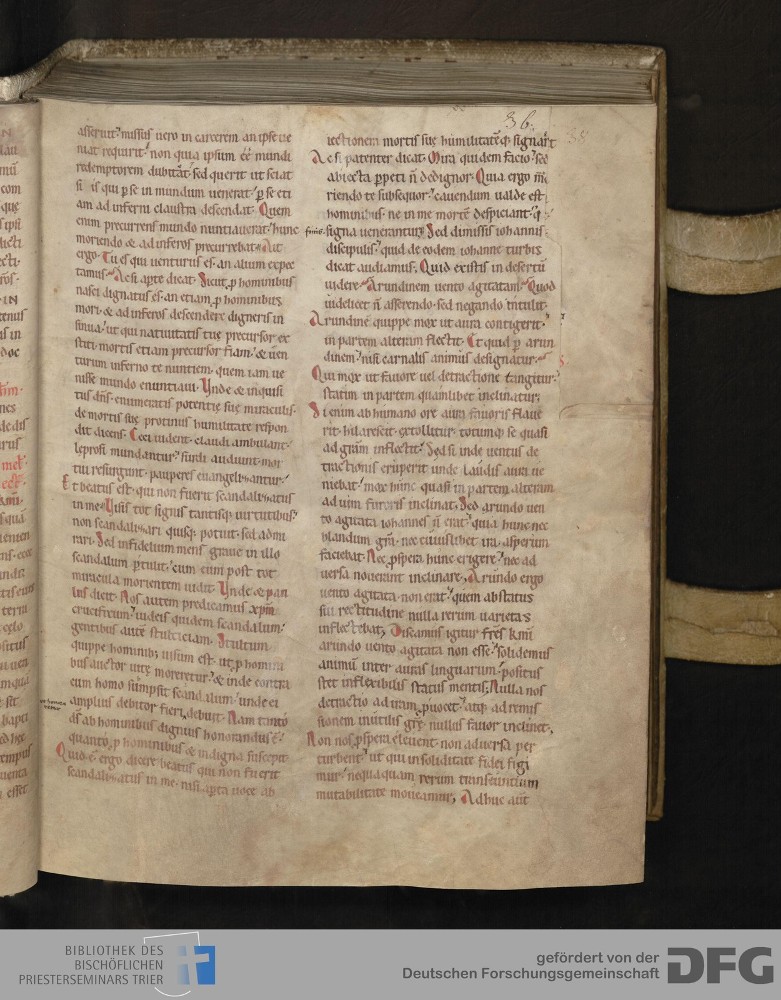 36
asseruit? missus uero in carcerem an ipse ue
niat requirit? non quia ipsum eē mundi
redemptorem dubitat? sed querit ut sciat
si is qui ꝑ se in mundum uenerat? ꝑ se eti
am ad inferni claustra descendat. Quem
enim precurrens mundo nuntiauerat? hunc
moriendo & ad inferos precurrebat. Ait
ergo. Tu es qui uenturus es? an alium expec
tamus? Ac si aꝑte dicat. Sicut ꝓ hominibus
nasci dignatus es? an etiam ꝓ hominibus
mori? & ad inferos descendere digneris in
sinua? ut qui natiuitatis tuę precursor ex
stiti? mortis etiam precursor fiam? & uen
turum inferno te nuntiem? quem iam ue
nisse mundo enuntiaui. Unde & inquisi
tus dn̄s enumeratis potentię suę miraculis
de mortis suę protinus humilitate respon
dit dicens. Ceci uident. claudi ambulant?
leprosi mundantur? surdi audiunt. mor
tui resurgunt. pauperes euangelizantur?
Et beatus est? qui non fuerit scandalizatus
in me. Visis tot signis tantisq; uirtutibus?
non scandalizari quisq; potuit. sed admi
rari. Sed infidelium mens graue in illo
scandalum ꝑtulit? cum eum post tot
miracula morientem uidit. Unde & pau
lus dicit. Nos autem predicamus xp̄m
crucifixum? iudeis quidem scandalum?
gentibus autē stulticiam. Stultum
quippe hominib; uisum est? ut ꝓ homini
bus auctor uitę moreretur? & inde contra
eum homo sumpsit scandalum? unde ei
amplius debitor fieri debuit. Nam tanto
ds̄ ab hominibus dignius honorandus ē?
quanto ꝓ hominibus & indigna suscepit.
Quid ē ergo dicere beatus qui non fuerit
scandalizatus in me? nisi aꝑta uoce ab
iectionem mortis suę humilitatēq; signare?
Ac si patenter dicat. Mira quidem facio? sed
abiecta ꝑpeti n̄ dedignor. Quia ergo mo
riendo te subsequor? cauendum ualde est
hominibus? ne in me mortē despiciant? q̄
signa uenerantur. Sed dimissis iohannis
discipulis? quid de eodem iohanne turbis
dicat audiamus. Quid existis in desertū
uidere? Arundinem uento agitatam? Quod
uidelicet n̄ asserendo. sed negando intulit.
Arundinē quippe mox ut aura contigerit?
in partem alteram flectit. Et quid ꝑ arun
dinem? nisi carnalis animus designatur?
Qui mox ut fauore uel detractione tangitur?
statim in partem quamlibet inclinatur.
Si enim ab humano ore aura fauoris flaue
rit? hilarescit. extollitur. totumq; se quasi
ad gram̄ inflectit. Sed si inde uentus de
tractionis eruperit unde laudis aura ue
niebat? mox hunc quasi in partem alteram
ad uim furoris inclinat. Sed arundo uen
to agitata iohannes n̄ erat? quia hunc nec
blandum gr̄a? nec cuiuslibet ira. asperum
faciebat. Nec ꝓspera hunc erigere? nec ad
uersa nouerant inclinare. Arundo ergo
uento agitata non erat? quem ab status
sui rectitudine nulla rerum uarietas
inflectebat. Discamus igitur frēs k̄mi
arundo uento agitata non esse? solidemus
animū inter auras linguarum? positus
stet inflexibilis status mentis. Nulla nos
detractio ad iram ꝓuocet? atq; ad remis
sionem inutilis grę nullus fauor inclinet.
Non nos ꝓspera eleuent. non aduersa per
turbent? ut qui in soliditate fidei figi
mur? nequaquam rerum transeuntium
mutabilitate moueamur. Adhuc aūt
BIBLIOTHEK DES
BISCHÖFLICHEN
PRIESTERSEMINARS TRIER
gefördert von der
Deutschen Forschungsgemeinschaft
DFG